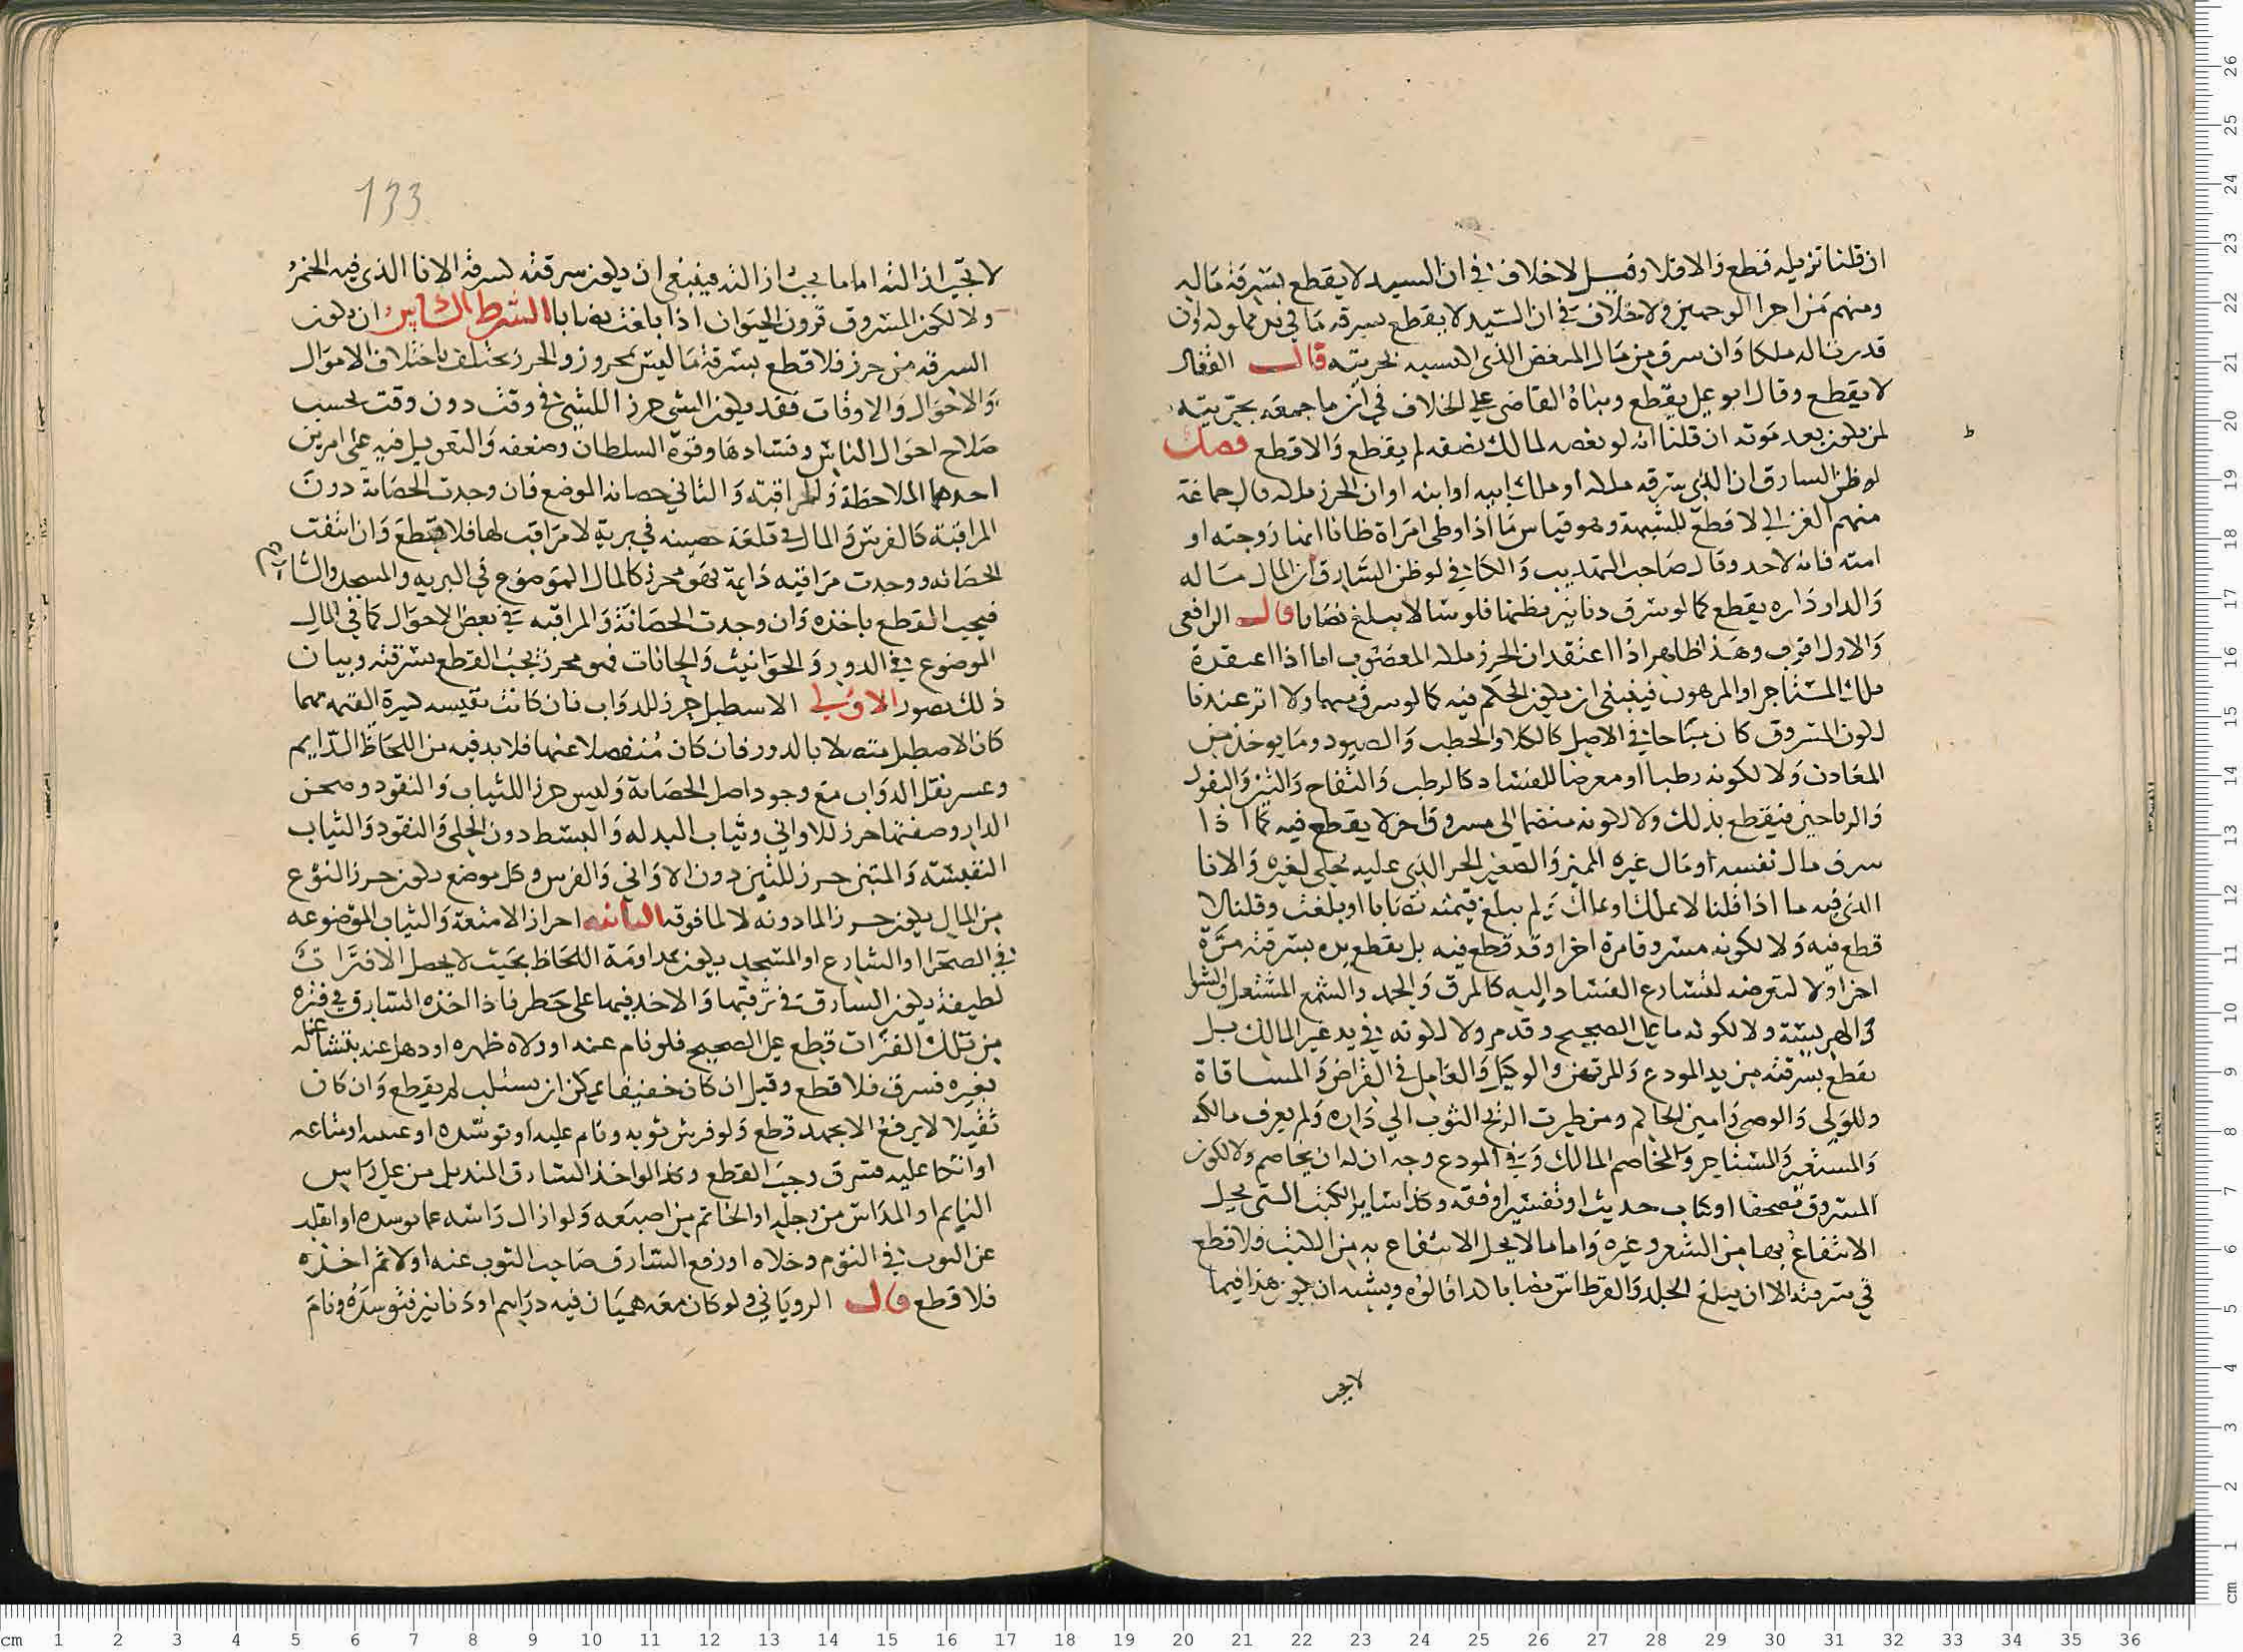 ان قلنا تزيله قطع والا فلا وقيل لاخلاف في ان السيد لا يقطع بسرقة ماله
ومنهم من اجرا الوجهين ولا خلاف في ان السيد لا يقطع بسرقه ما في يد مملوكه وان
قدرناله ملكا وان سرق من مال المبعض الذي اكتسبه بحريته قال القفال
لا يقطع وقال ابو علي يقطع وبناه القاضي علي الخلاف في ان ما جمعه بحريته
لمن يكون بعد موته ان قلنا انه لو بعضه لمالك نصفه لم يقطع والا قطع فصل
لو ظن السارق ان الذي سرقه ملكه او ملك ابيه او ابنه او ان الحرز ملكه قال جماعة
منهم الغزالي لا قطع للشبهة وهو قياس ما اذا وطي امراة ظانا انها زوجته او
امته فانه لاحد وقال صاحب التهذيب والكافي لو ظن السارق ان المال ماله
والدار داره يقطع كما لو سرق دنانير يظنها فلوسا لا يبلغ نصابا قال الرافعي
والاول اقرب وهذا ظاهر اذا اعتقد ان الحرز ملكه المغصوب اما اذا اعتقده
ملك المستاجر او المرهون فينبغي ان يكون الحكم فيه كما لو سرق منهما ولا اثر عندنا
لكون المسروق كان مباحا في الاصل كالكلا والحطب والصيود وما يوخذ من
المعادن ولا لكونه رطبا او معرضا للفساد كالرطب والتفاح والتين والبقول
والرياحين فيقطع بذلك ولا لكونه منضما الي مسروق اخر لا يقطع فيه كما اذا
سرق مال نفسه او مال غيره المميز والصغير الحر الذي عليه حلي لغيره والانا
الذي فيه ما اذا قلنا لا يملك او يملك ولم يبلغ قيمته نصابا او بلغت وقلنا لا
قطع فيه ولا لكونه مسروقا مرة اخرا وقد قطع فيه بل يقطع يده بسرقته مرة
اخرا ولا لتعرضه لتسارع الفساد اليه كالمرق والجمد والشمع المشتعل والشوا
والهريسة ولا لكونه ما علي الصحيح وقدم ولا لكونه في يد غير المالك بل
يقطع بسرقته من يد المودع والمرتهن والوكيل والعامل في القراض والمساقاة
وللولي والوصي وامين الحاكم ومن طيرت الريح الثوب الي داره ولم يعرف مالكه
والمستعير والمستاجر والمخاصم المالك وفي المودع وجه ان له ان يخاصم ولا لكون
المسروق مصحفا او كتاب حديث او تفسير او فقه وكذا ساير الكتب التي يحل
الانتفاع بها من الشعر وغيره واما ما لا يحل الانتفاع به من الكتب فلا قطع
في سرقته الا ان يبلغ الجلد والقرطاس نصابا كذا قالوه ويشبه ان يكون هذا فيما
لا يجب
133
لا تجب ازالته اما ما يجب ازالته فينبغي ان يكون سرقته كسرقة الانا الذي فيه الخمر
ولا لكون المسروق قرون الحيوان اذا بلغت نصابا الشرط السادس ان يكون
السرقه من حرز فلا قطع بسرقة ما ليس بمحروز والحرز يختلف باختلاف الاموال
والاحوال والاوقات فقد يكون الشي حرزا للشي في وقت دون وقت بحسب
صلاح احوال الناس وفسادها وقوة السلطان وضعفه والتعويل فيه على امرين
احدهما الملاحظة والمراقبة والثاني حصانه الموضع فان وجدت الحصانة دون
المراقبة كالفرس والمال في قلعة حصينه في برية لا مراقب لها فلا قطع وان انتفت
الحصانه ووجدت مراقبه دايمة فهو محرز كالمال الموضوع في البريه والمسجد والشارع
فيجب القطع باخذه وان وجدت الحصانة والمراقبه في بعض الاحوال كما في المال
الموضوع في الدور والحوانيت والخانات فهو محرز يجب القطع بسرقته وبيان
ذلك بصور الاولي الاسطبل حرز للدواب فان كانت نفيسه كثيرة القيمه مهما
كان الاصطبل متصلا بالدور فان كان منفصلا عنها فلا بد فيه من اللحاظ الدايم
وعسر نقل الدواب مع وجود اصل الحصانة وليس حرزا للثياب والنقود وصحن
الدار وصفتها حرز للاواني وثياب البدله والبسط دون الحلي والنقود والثياب
النفيسة والمتبن حرز للتبن دون الاواني والفرس وكل موضع يكون حرزا لنوع
من المال يكون حرزا لما دونه لا لما فوقه الثانيه احراز الامتعة والثياب الموضوعه
في الصحرا والشارع او المسجد يكون بمداومة اللحاظ بحيث لا يحصل الا فترات
لطيفة يكون السارق في ترقبها والاخذ فيها على خطر فاذا اخذه السارق في فترة
من تلك الفترات قطع علي الصحيح فلو نام عنه او ولاه ظهره او ذهل عنه بتشاغله
بغيره فسرق فلا قطع وقيل ان كان خفيفا يمكن ان يستلب لم يقطع وان كان
ثقيلا لا يرفع الا بجهد قطع ولو فرش ثوبه ونام عليه او توسده او عيبته او متاعه
او اتكا عليه فسرق وجب القطع وكذا لو اخذ السارق المنديل من علي راس
النايم او المداس من رجليه او الخاتم من اصبعه ولو ازال راسه عما توسده او انقلب
عن الثوب في النوم وخلاه او رفع السارق صاحب الثوب عنه اولا ثم اخذه
فلا قطع قال الروياني ولو كان معه هميان فيه دراهم او دنانير فتوسده ونام